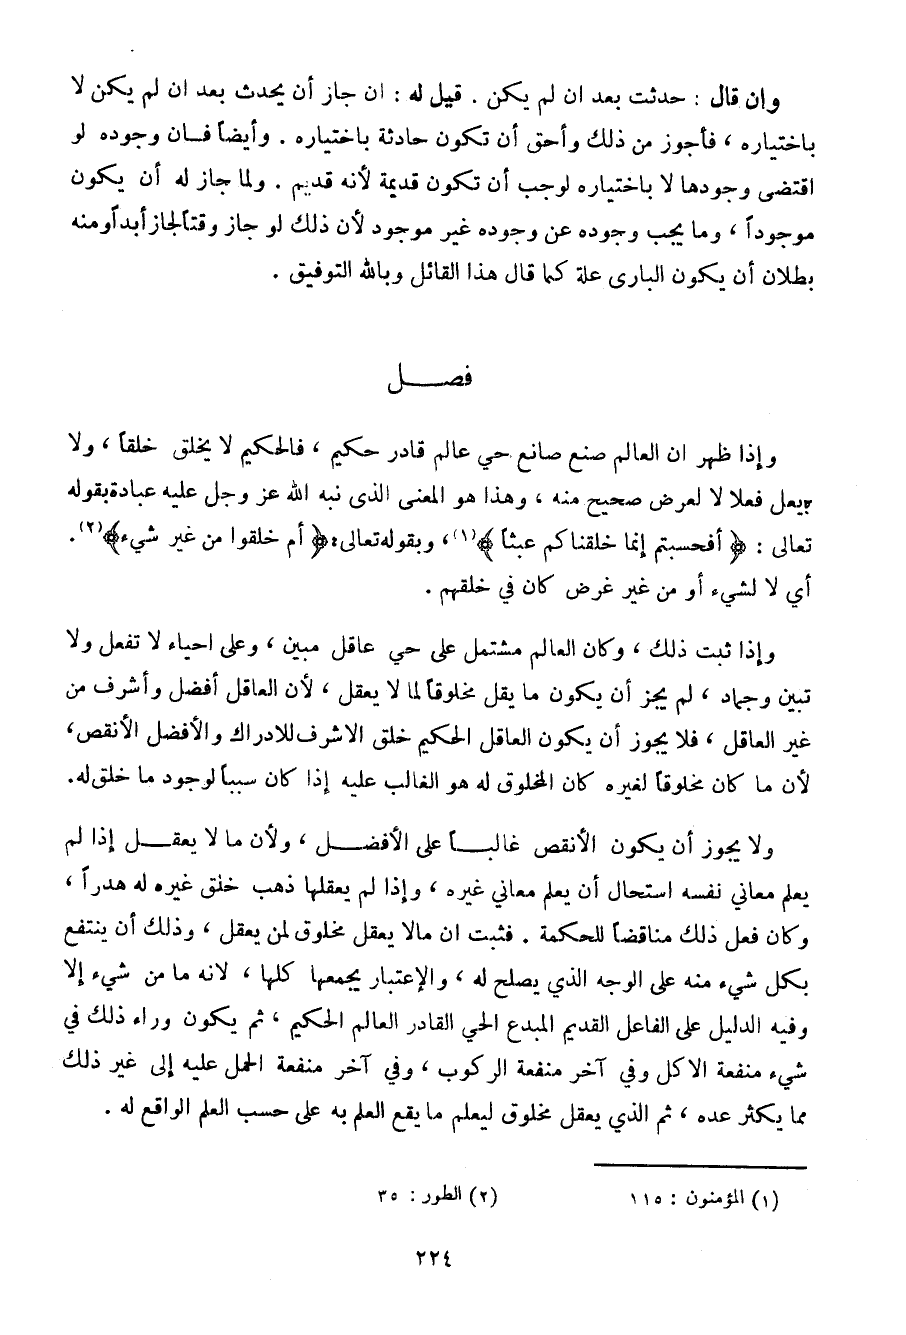 وإن قال : حدثت بعد ان لم يكن . قيل له : ان جاز أن يحدث بعد ان لم يكن لا
باختياره ، فأجوز من ذلك وأحق أن تكون حادثة باختياره . وأيضاً فـان وجوده لو
اقتضى وجودها لا باختياره لوجب أن تكون قديمة لأنه قديم . ولما جاز له أن يكون
موجوداً ، وما يجب وجوده عن وجوده غير موجود لأن ذلك لو جاز وقتاً لجاز أبداً ومنه
بطلان أن يكون البارى علة كما قال هذا القائل وبالله التوفيق .
فصـــل
وإذا ظهر ان العالم صنع صانع حي عالم قادر حكيم ، فالحكيم لا يخلق خلقاً ، ولا
يعل فعلا لا لعرض صحيح منه ، وهذا هو المعنى الذى نبه الله عز وجل عليه عبادة بقوله
تعالى : ﴿ أفحسبتم إنما خلقناكم عبثاً ﴾(١)، وبقوله تعالى: ﴿ أم خلقوا من غير شيء﴾(٢).
أي لا لشيء أو من غير غرض كان في خلقهم .
وإذا ثبت ذلك ، وكان العالم مشتمل على حي عاقل مبين ، وعلى احياء لا تفعل ولا
تبين وجماد ، لم يجز أن يكون ما يقل مخلوقاً لما لا يعقل ، لأن العاقل أفضل وأشرف من
غير العاقل ، فلا يجوز أن يكون العاقل الحكيم خلق الاشرف للادراك والأفضل الأنقص،
لأن ما كان مخلوقاً لغيره كان المخلوق له هو الغالب عليه إذا كان سبباً لوجود ما خلق له.
ولا يجوز أن يكون الأنقص غالبـــاً على الأفضـــل ، ولأن ما لا يعقـــل إذا لم
يعلم معاني نفسه استحال أن يعلم معاني غيره ، وإذا لم يعقلها ذهب خلق غيره له هدراً ،
وكان فعل ذلك مناقضاً للحكمة . فثبت ان مالا يعقل مخلوق لمن يعقل ، وذلك أن ينتفع
بكل شيء منه على الوجه الذي يصلح له ، والإعتبار يجمعها كلها ، لانه ما من شيء إلا
وفيه الدليل على الفاعل القديم المبدع الحي القادر العالم الحكيم ، ثم يكون وراء ذلك في
شيء منفعة الاكل وفي آخر منفعة الركوب ، وفي آخر منفعة الحمل عليه إلى غير ذلك
مما يكثر عده ، ثم الذي يعقل مخلوق ليعلم ما يقع العلم به على حسب العلم الواقع له .
(١) المؤمنون : ١١٥ (٢) الطور : ٣٥
٢٢٤